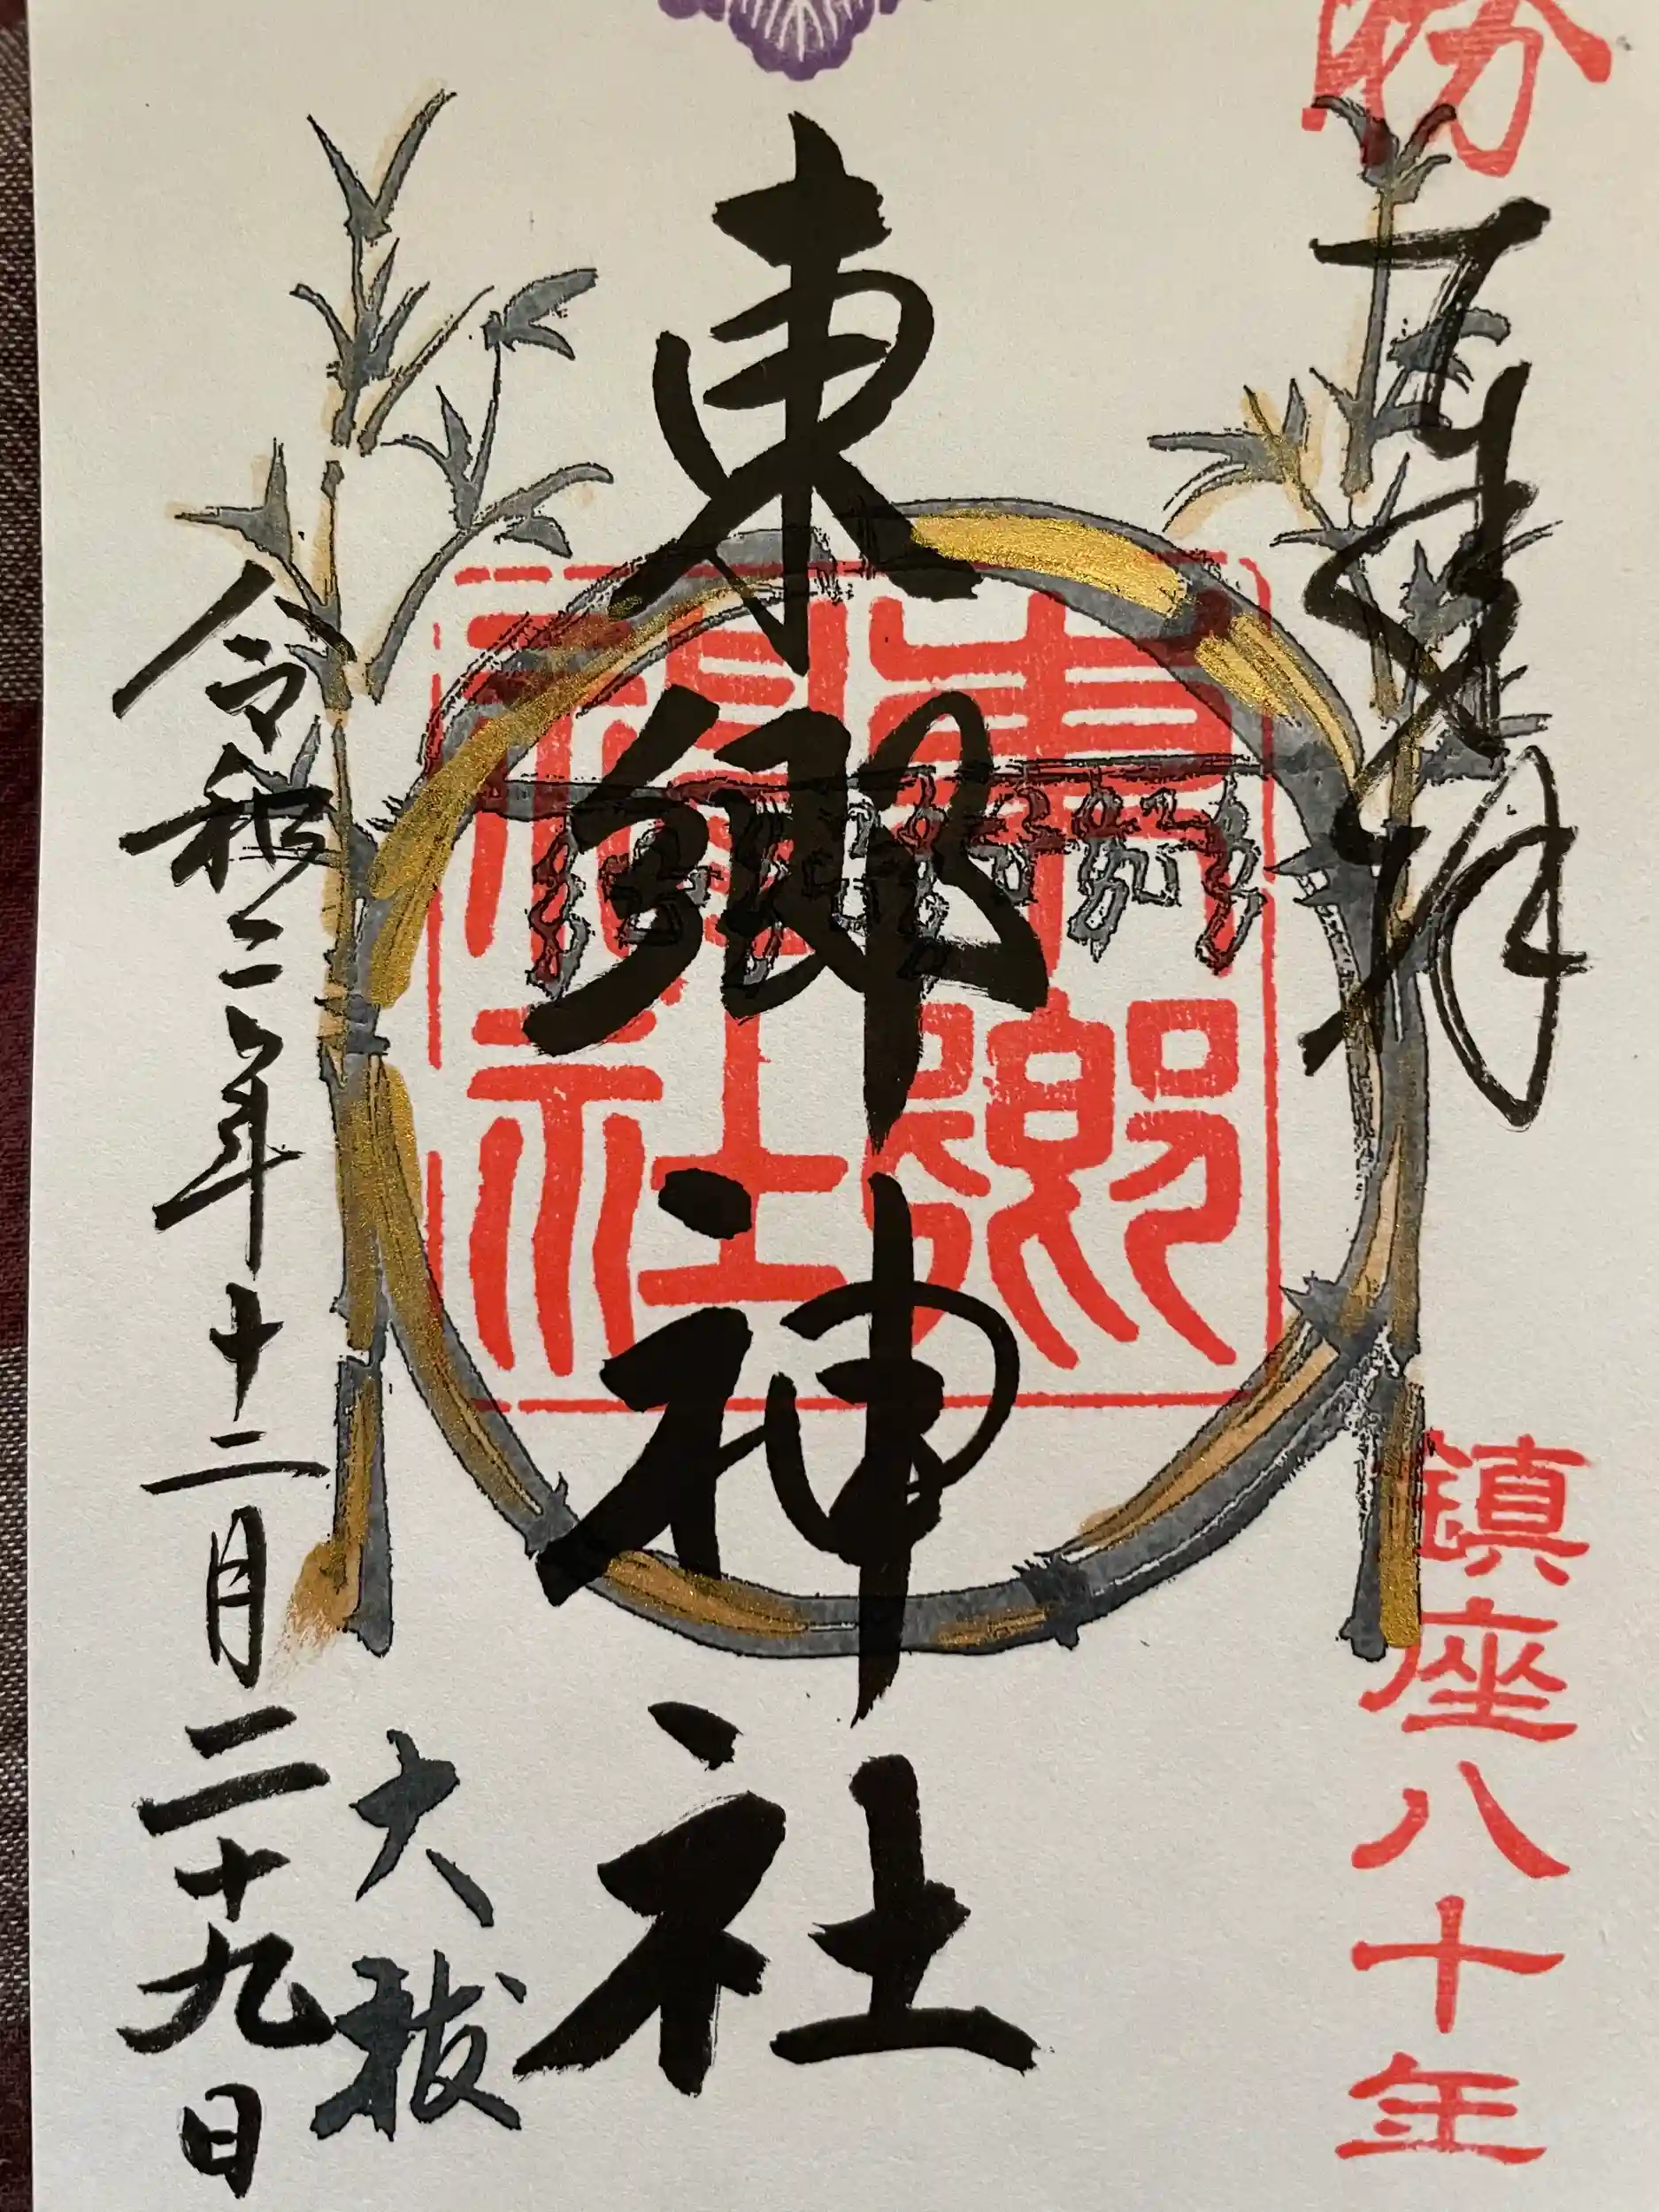 奉拝
鎮座八十年
東郷神社
東郷神社
大祓
令和二年十二月二十九日